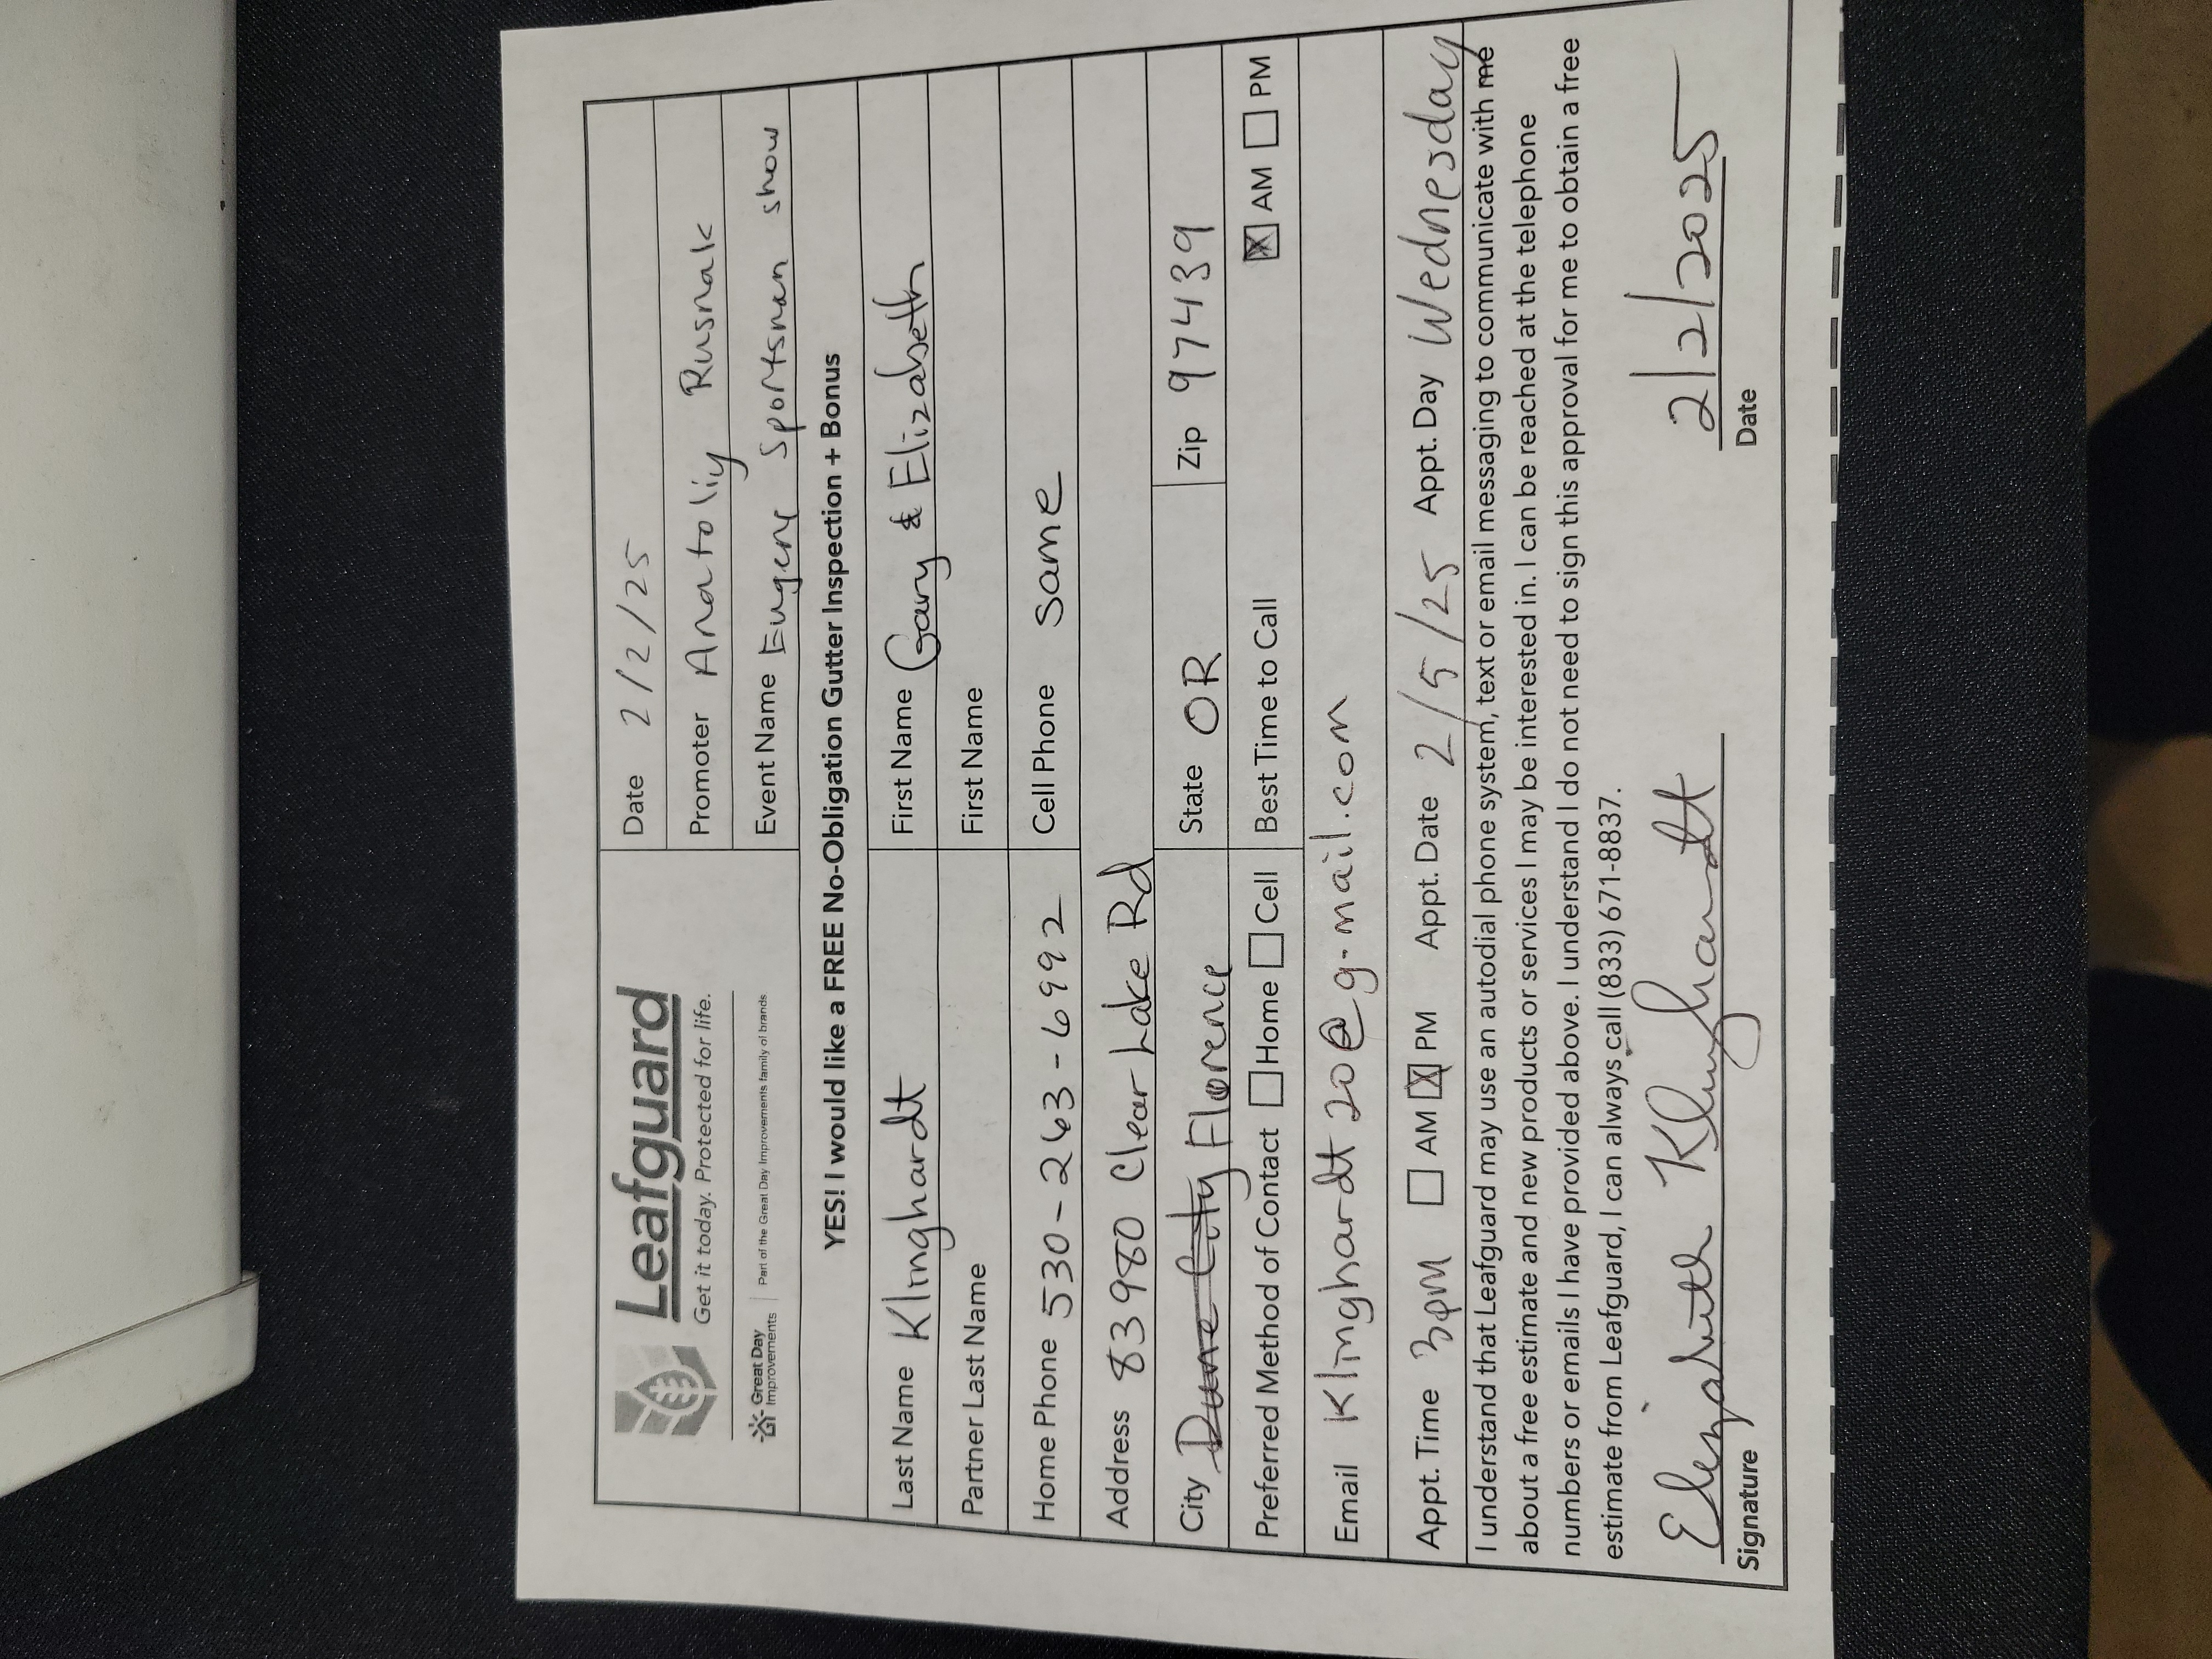 Leafguard
Get it today. Protected for life.
Great Day Improvements | Part of the Great Day Improvements family of brands
Date 2/2/25
Promoter Anatoliy Rusnak
Event Name Eugene Sportsman show
YES! I would like a FREE No-Obligation Gutter Inspection + Bonus
Last Name Klinghardt First Name Gary & Elizabeth
Partner Last Name First Name
Home Phone 530-263-6992 Cell Phone same
Address 83980 Clear Lake Rd
City Dune City Florence State OR Zip 97439
Preferred Method of Contact ☐ Home ☐ Cell Best Time to Call ☒ AM ☐ PM
Email Klinghardt20@g-mail.com
Appt. Time 3pm ☐ AM ☒ PM Appt. Date 2/5/25 Appt. Day Wednesday
I understand that Leafguard may use an autodial phone system, text or email messaging to communicate with me
about a free estimate and new products or services I may be interested in. I can be reached at the telephone
numbers or emails I have provided above. I understand I do not need to sign this approval for me to obtain a free
estimate from Leafguard, I can always call (833) 671-8837.
Elizabeth Klinghardt 2/2/2025
Signature Date